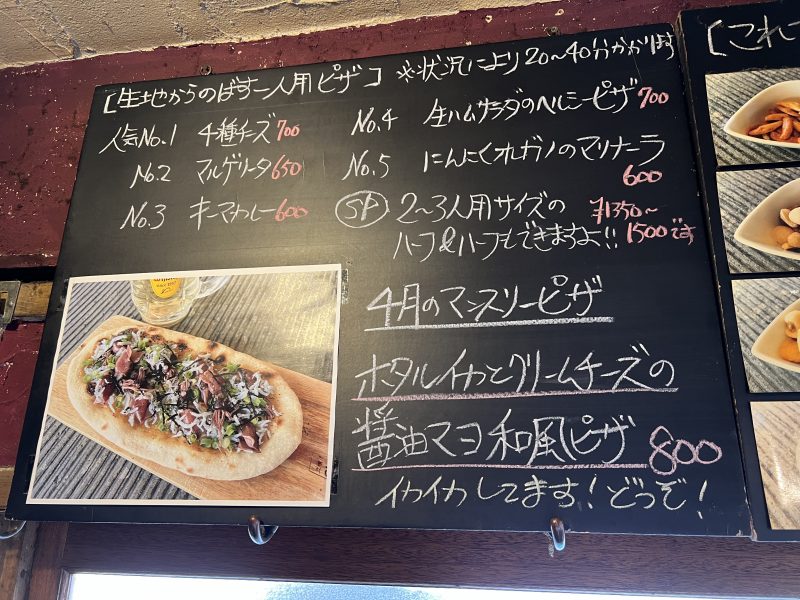 [生地からのばす一人用ピザ] ※状況により20～40分かかります
人気No.1 4種チーズ 700
No.2 マルゲリータ 650
No.3 キーマカレー 600
No.4 生ハムサラダのヘルシーピザ 700
No.5 にんにくオレガノのマリナーラ
600
SP 2～3人用サイズの ¥1350～
ハーフ&ハーフもできますよ!! 1500です
4月のマンスリーピザ
ホタルイカとクリームチーズの
醤油マヨ和風ピザ 800
イカイカしてます!どうぞ!
[これ